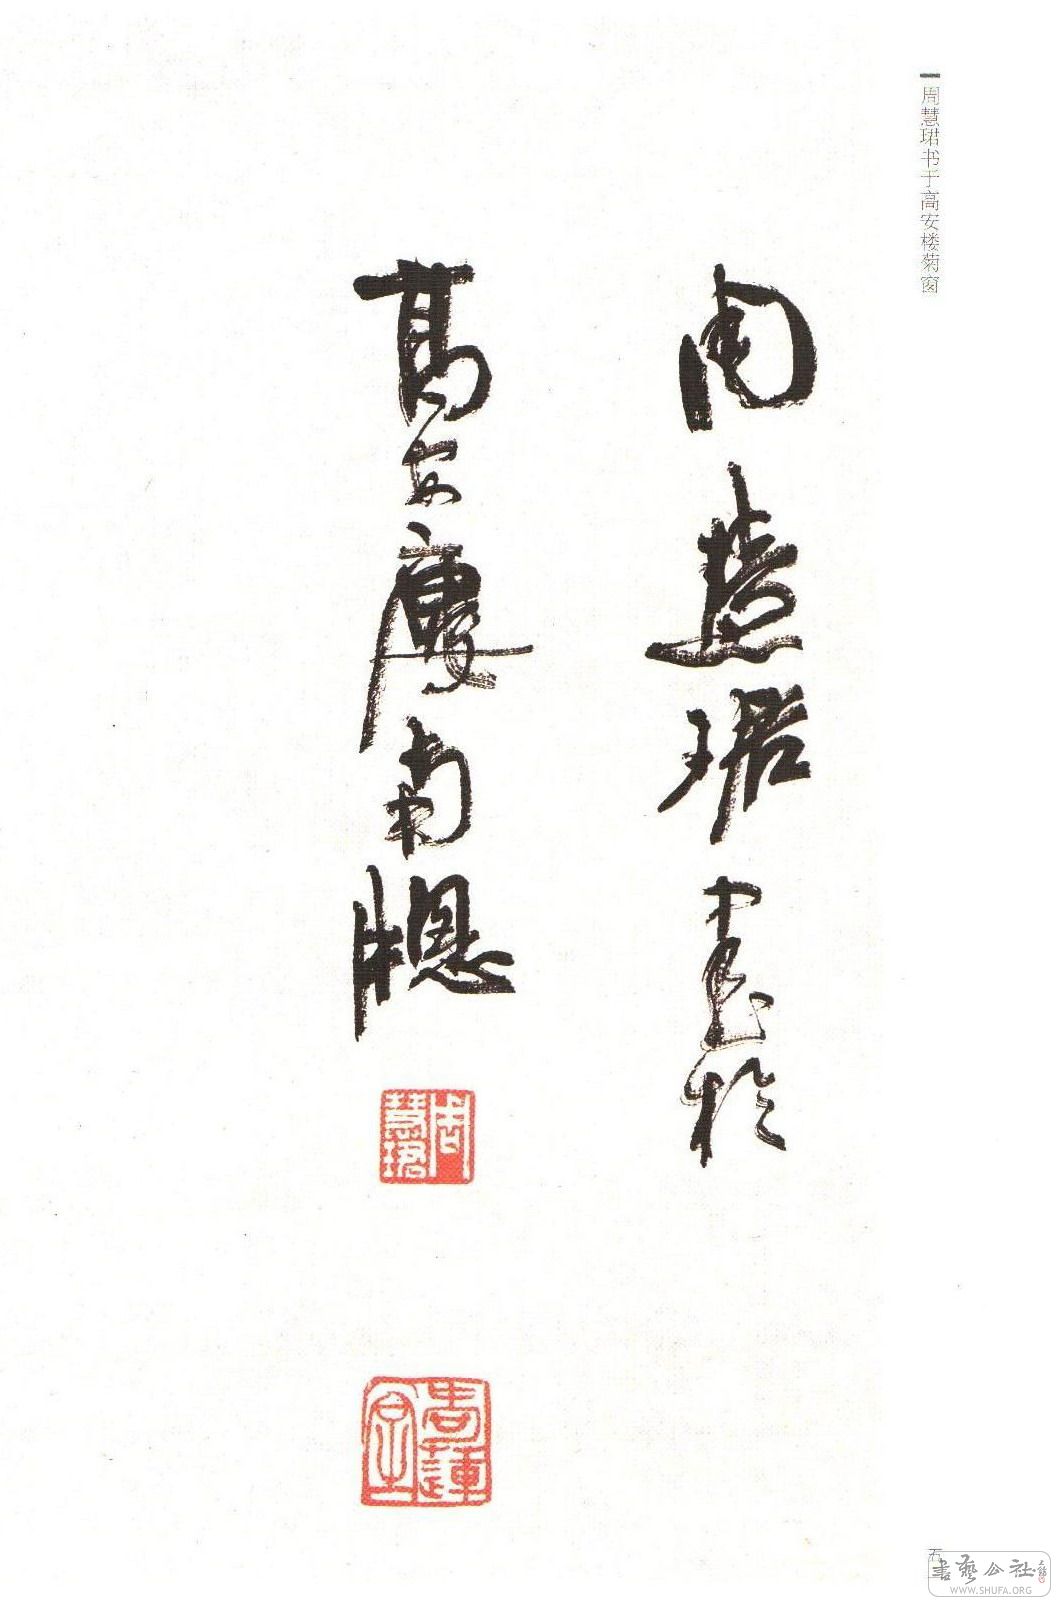 周慧珺书于高安楼菊窗
周慧珺書於
高安廔南牕
周慧珺
五
書藝公社
WWW.SHUFA.ORG